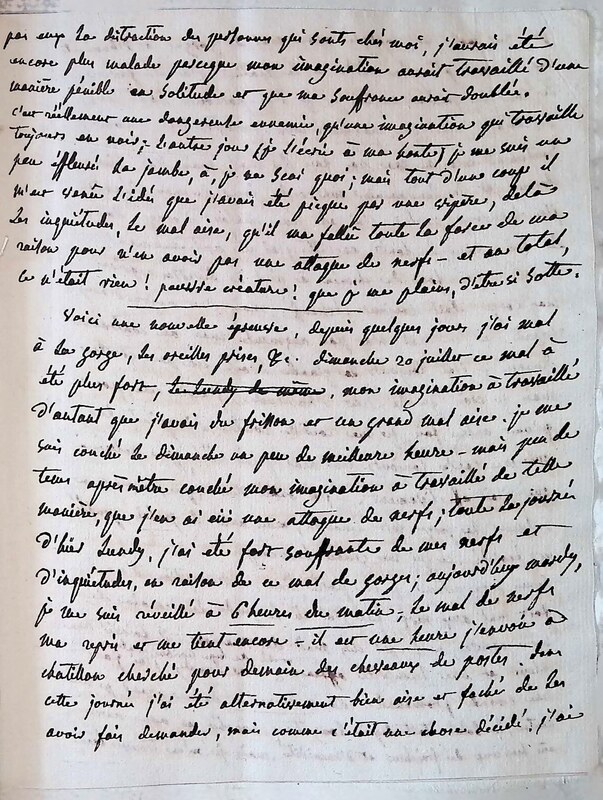 pas eux la distraction des personnes qui sonts chés moi, j'aurais été
encore plus malade parceque mon imagination aurait travaillé d'une
manière pénible en solitude et que ma souffrance aurait doublée.
c'est réellement une dangereuse ennemie, qu'une imagination qui travaille
toujours en noir; l'autre jour (je l'écris à ma honte) je me suis un
peu éffleuré la jambe, à, je ne scai quoi; mais tout d'une coup il
m'est venue l'idé que j'avais été picqué par une vipère, delà
les inquiétudes, le mal aise, qu'il ma fallue toute la force de ma
raison pour n'en avoir pas une attaque de nerfs – et au total,
ce n'était rien! pauvre créature! que je me plains, d'être si sotte.
Voici une nouvelle épreuve, depuis quelques jours j'ai mal
à la gorge, les oreilles prises, &c. dimanche 20 juillet ce mal à
été plus fort, le Lundy de même, mon imagination à travaillé
d'autant que j'avais du frisson et un grand mal aise. je me
suis couché le dimanche un peu de meilleure heure – mais peu de
tems après m'être couché mon imagination à travaillé de telle
manière, que j'en ai eü une attaque de nerfs; toute la journée
d'hier Lundy, j'ai été fort souffrante de mes nerfs et
d'inquiétudes, en raison de ce mal de gorges; aujourd'huy mardy,
je me suis réveillé à 6 heures du matin, le mal de nerfs
ma repris et me tient encore – il est une heure j'envoie à
chatillon cherché pour demain des chevaux de postes. dans
cette journée j'ai été alternativement bien aise et faché de les
avoir fais demander, mais comme c'était une chose décidé. j'ai